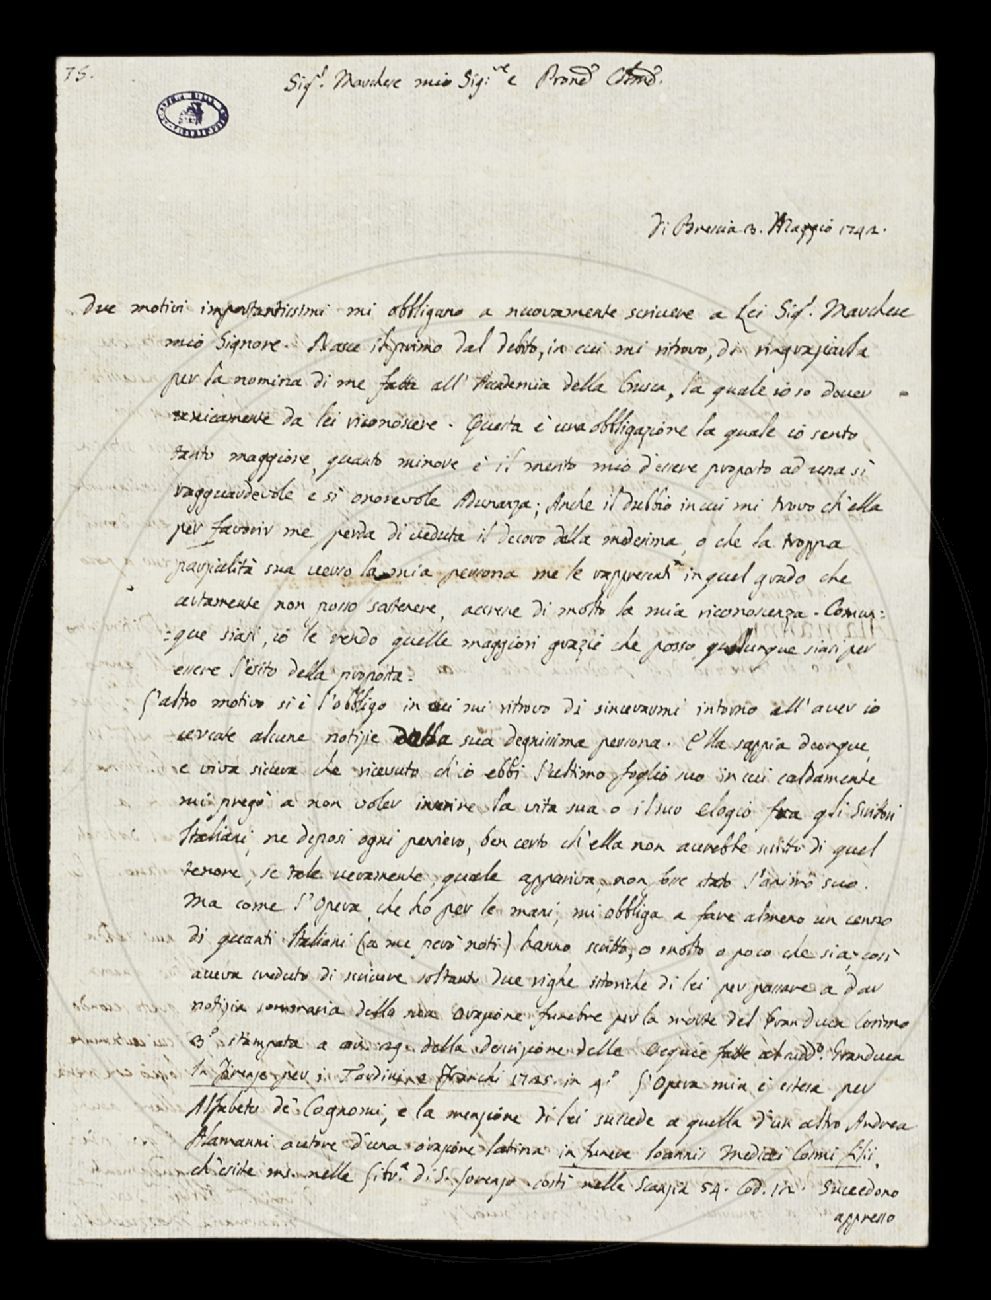 75.
Sig.r Marchese mio Sig.re e Prone Colmo.
di Brescia 3. Maggio 1742.
Due motivi importantissimi mi obbligano a nuovamente scrivere a Lei Sig.r Marchese
mio Signore. Nasce il primo dal debito, in cui mi ritrovo, di ringraziarla
per la nomina di me fatta all'Accademia della Crusca, la quale io so dover
unicamente da lei riconoscere. Questa è una obbligazione la quale io sento
tanto maggiore, quanto minore è il merito mio d'essere proposto ad una sì
ragguardevole e sì onorevole Adunanza; Anche il dubbio in cui mi trovo ch'ella
per favorir me perda di veduta il decoro della medesima, o che la troppa
parzialità sua verso la mia persona me le rappresenti in quel grado che
certamente non posso sostenere, accresce di molto la mia riconoscenza. Comun-
que siasi, io le rendo quelle maggiori grazie che posso qualunque siasi per
essere l'esito della proposta.
L'altro motivo si è l'obbligo in cui mi ritrovo di sincerarmi intorno all'aver io
cercate alcune notizie della sua degnissima persona. Ella sappia dunque,
e viva sicura che ricevuto ch'io ebbi l'ultimo foglio suo in cui caldamente
mi pregò a non voler inserire la vita sua o il suo elogio fra gli Scrittori
Italiani, ne deposi ogni pensiero, ben certo ch'ella non avrebbe scritto di quel
tenore, se tale veramente, quale appariva, non fosse stato l'animo suo.
Ma come l'Opera, che ho per le mani, mi obbliga a fare almeno un cenno
di quanti Italiani (a me però noti) hanno scritto, o molto o poco che sia, così
aveva creduto di scrivere soltanto due righe istoriche di lei per passare a dar
notizia sommaria della sua Orazione funebre per la morte del Granduca Cosimo
3.o stampata a car. 29. della Descrizione delle Esequie fatte al sudd.o Granduca
In Firenze per i Tartini e Franchi 1725. in 4.o L'Opera mia è estesa per
Alfabeto de' Cognomi, e la menzione di lei succede a quella d'un altro Andrea
Alamanni autore d'una orazione latina in funere Ioannis Medices Cosmi filii,
ch'esiste ms. nella Libr.a di S. Lorenzo costì nella Scanzia 54. Cod. 12. Succedono
appresso